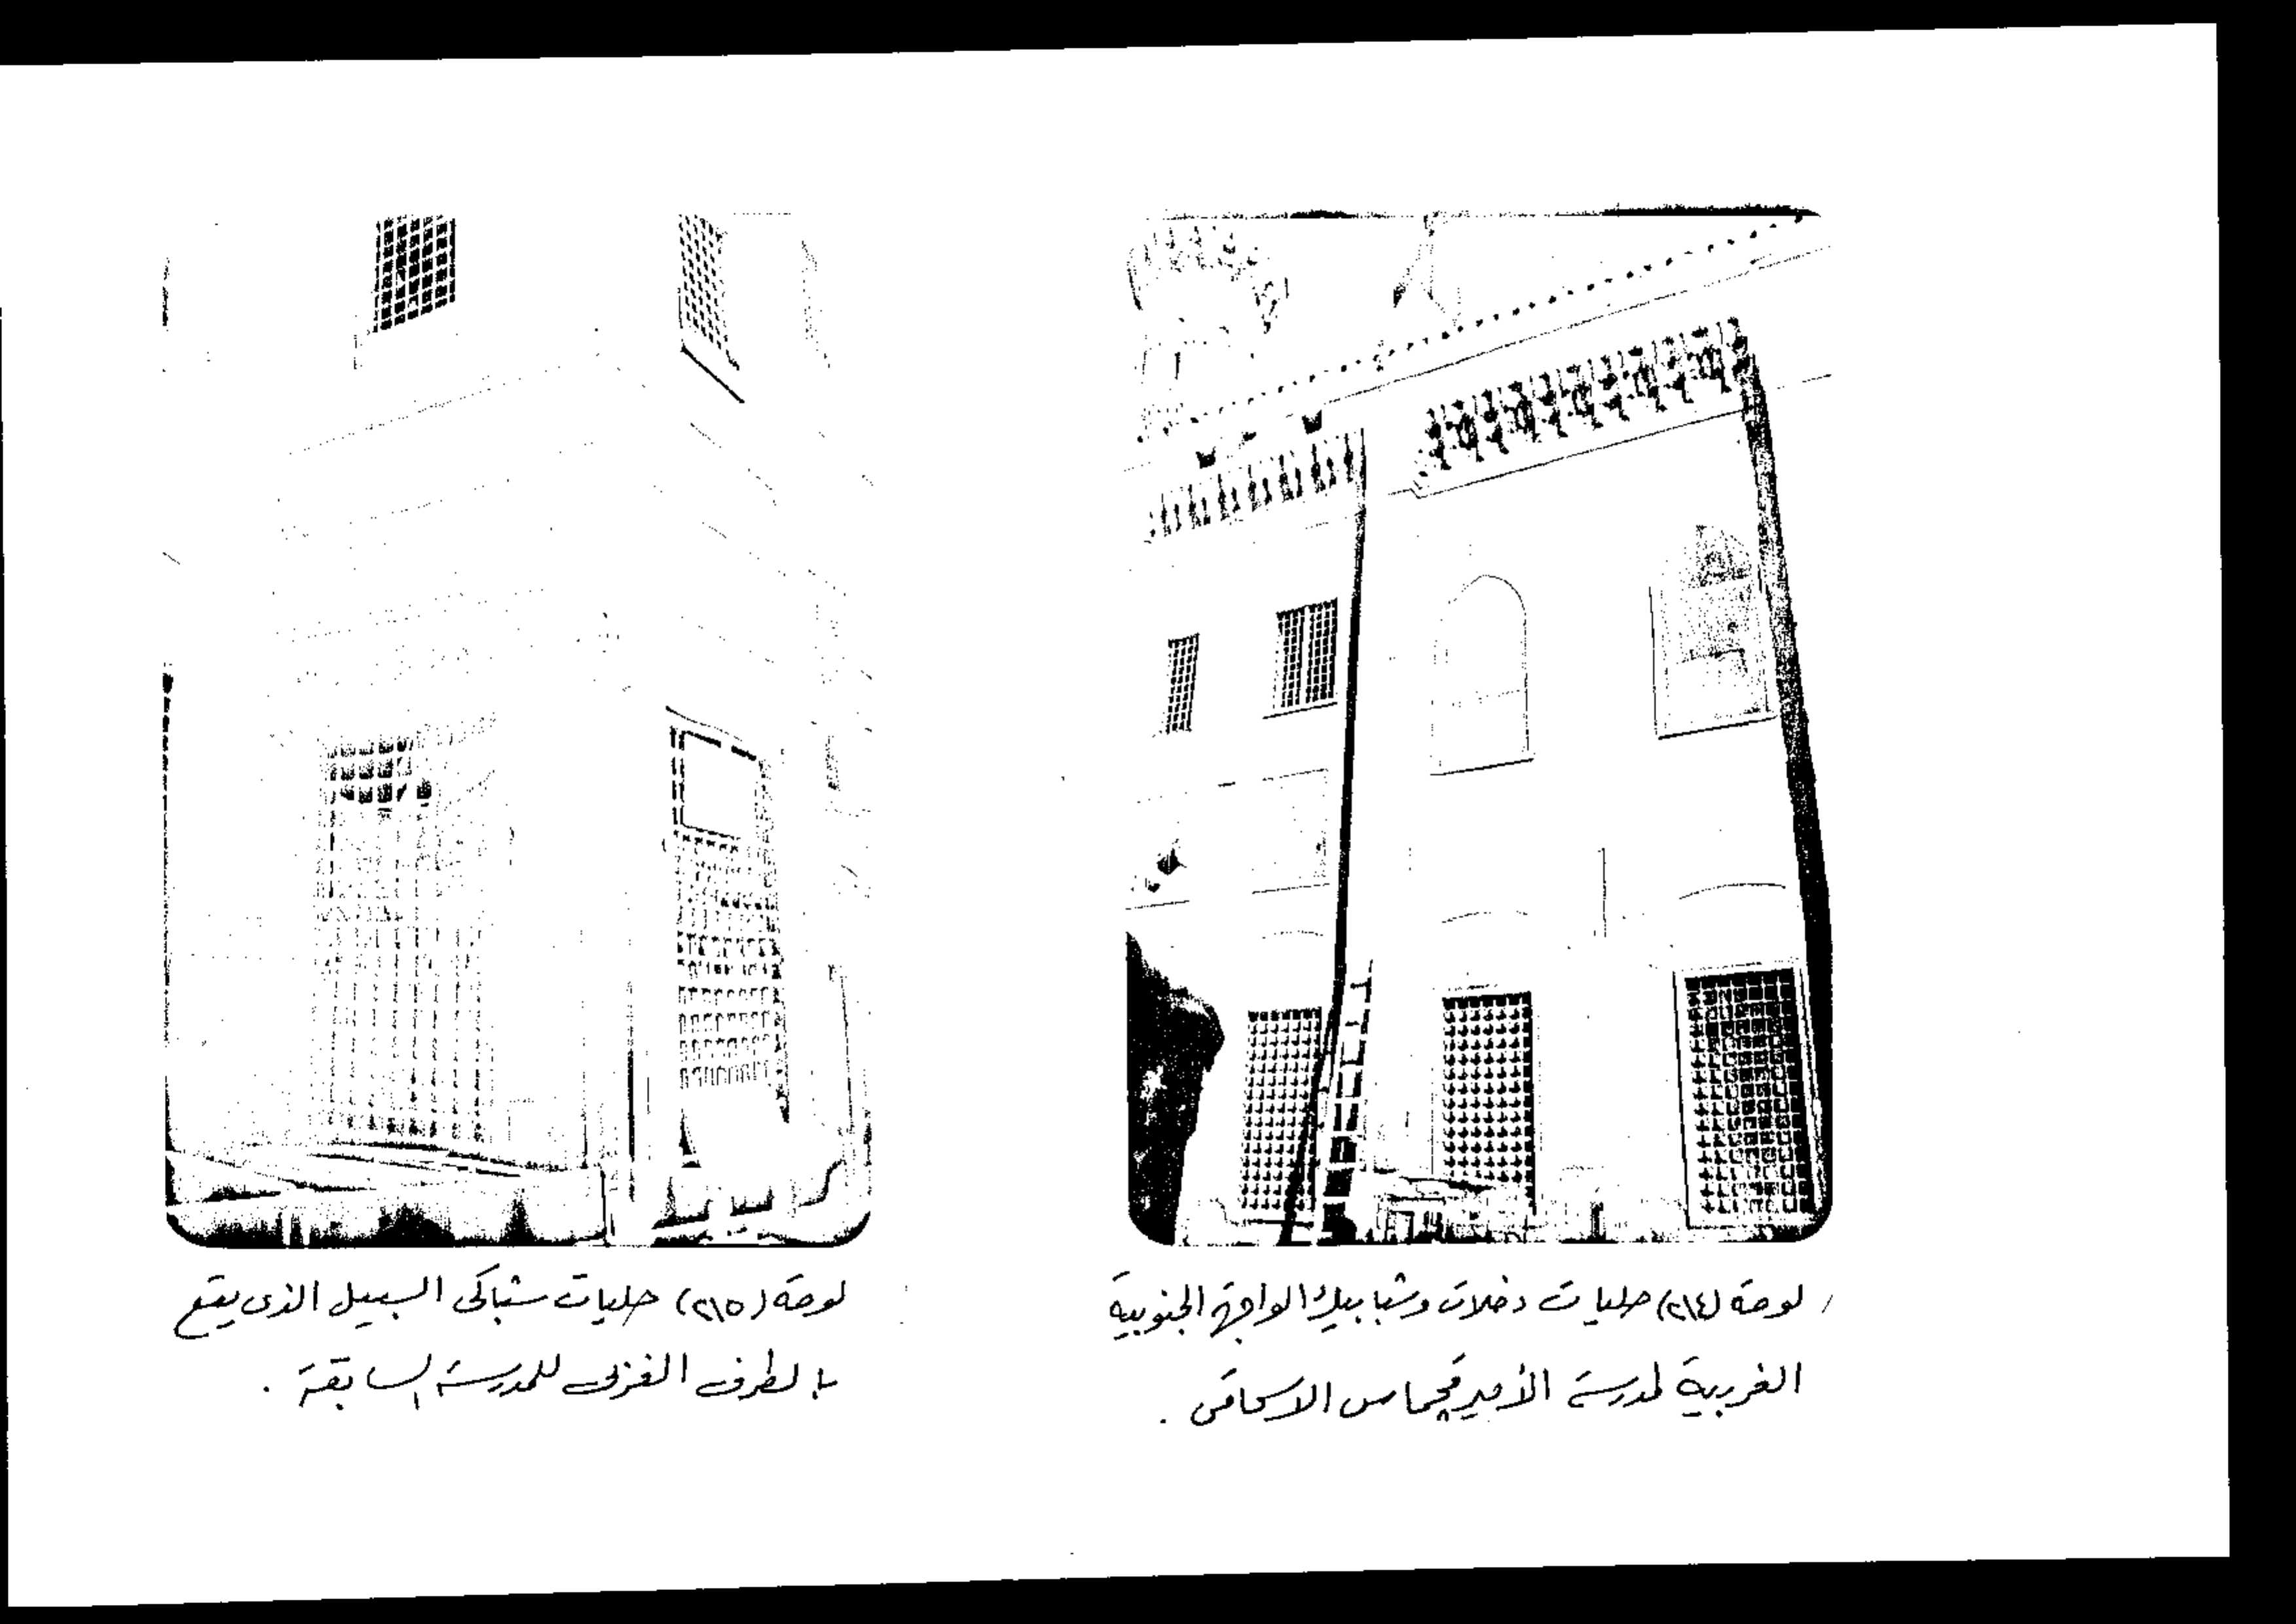 لوحة (٢١٤) حليات دخلات وشبابيك الواجهة الجنوبية
الغربية لمدرسة الأمير قجماس الاسحاقى .
لوحة (٢١٥) حليات شباكى السبيل الذى يقع
بالطرف الغربى للمدرسة السابقة .